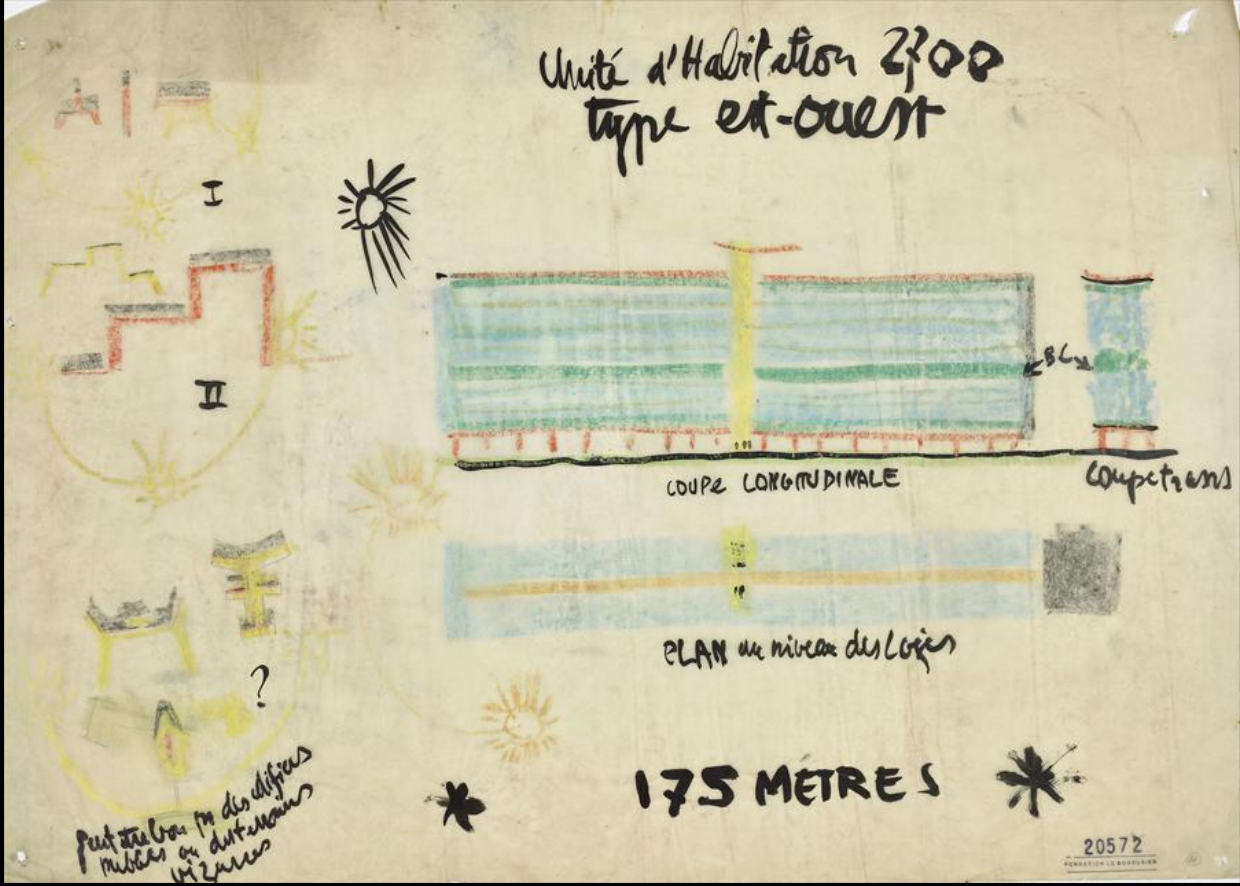 Unité d'Habitation 2700
type est-ouest
I
II
COUPE LONGITUDINALE
Coupe trans
PLAN au niveau des loges
?
175 METRES
peut être bon pr des édifices
publics ou des terrains
bizarres
20572
FONDATION LE CORBUSIER